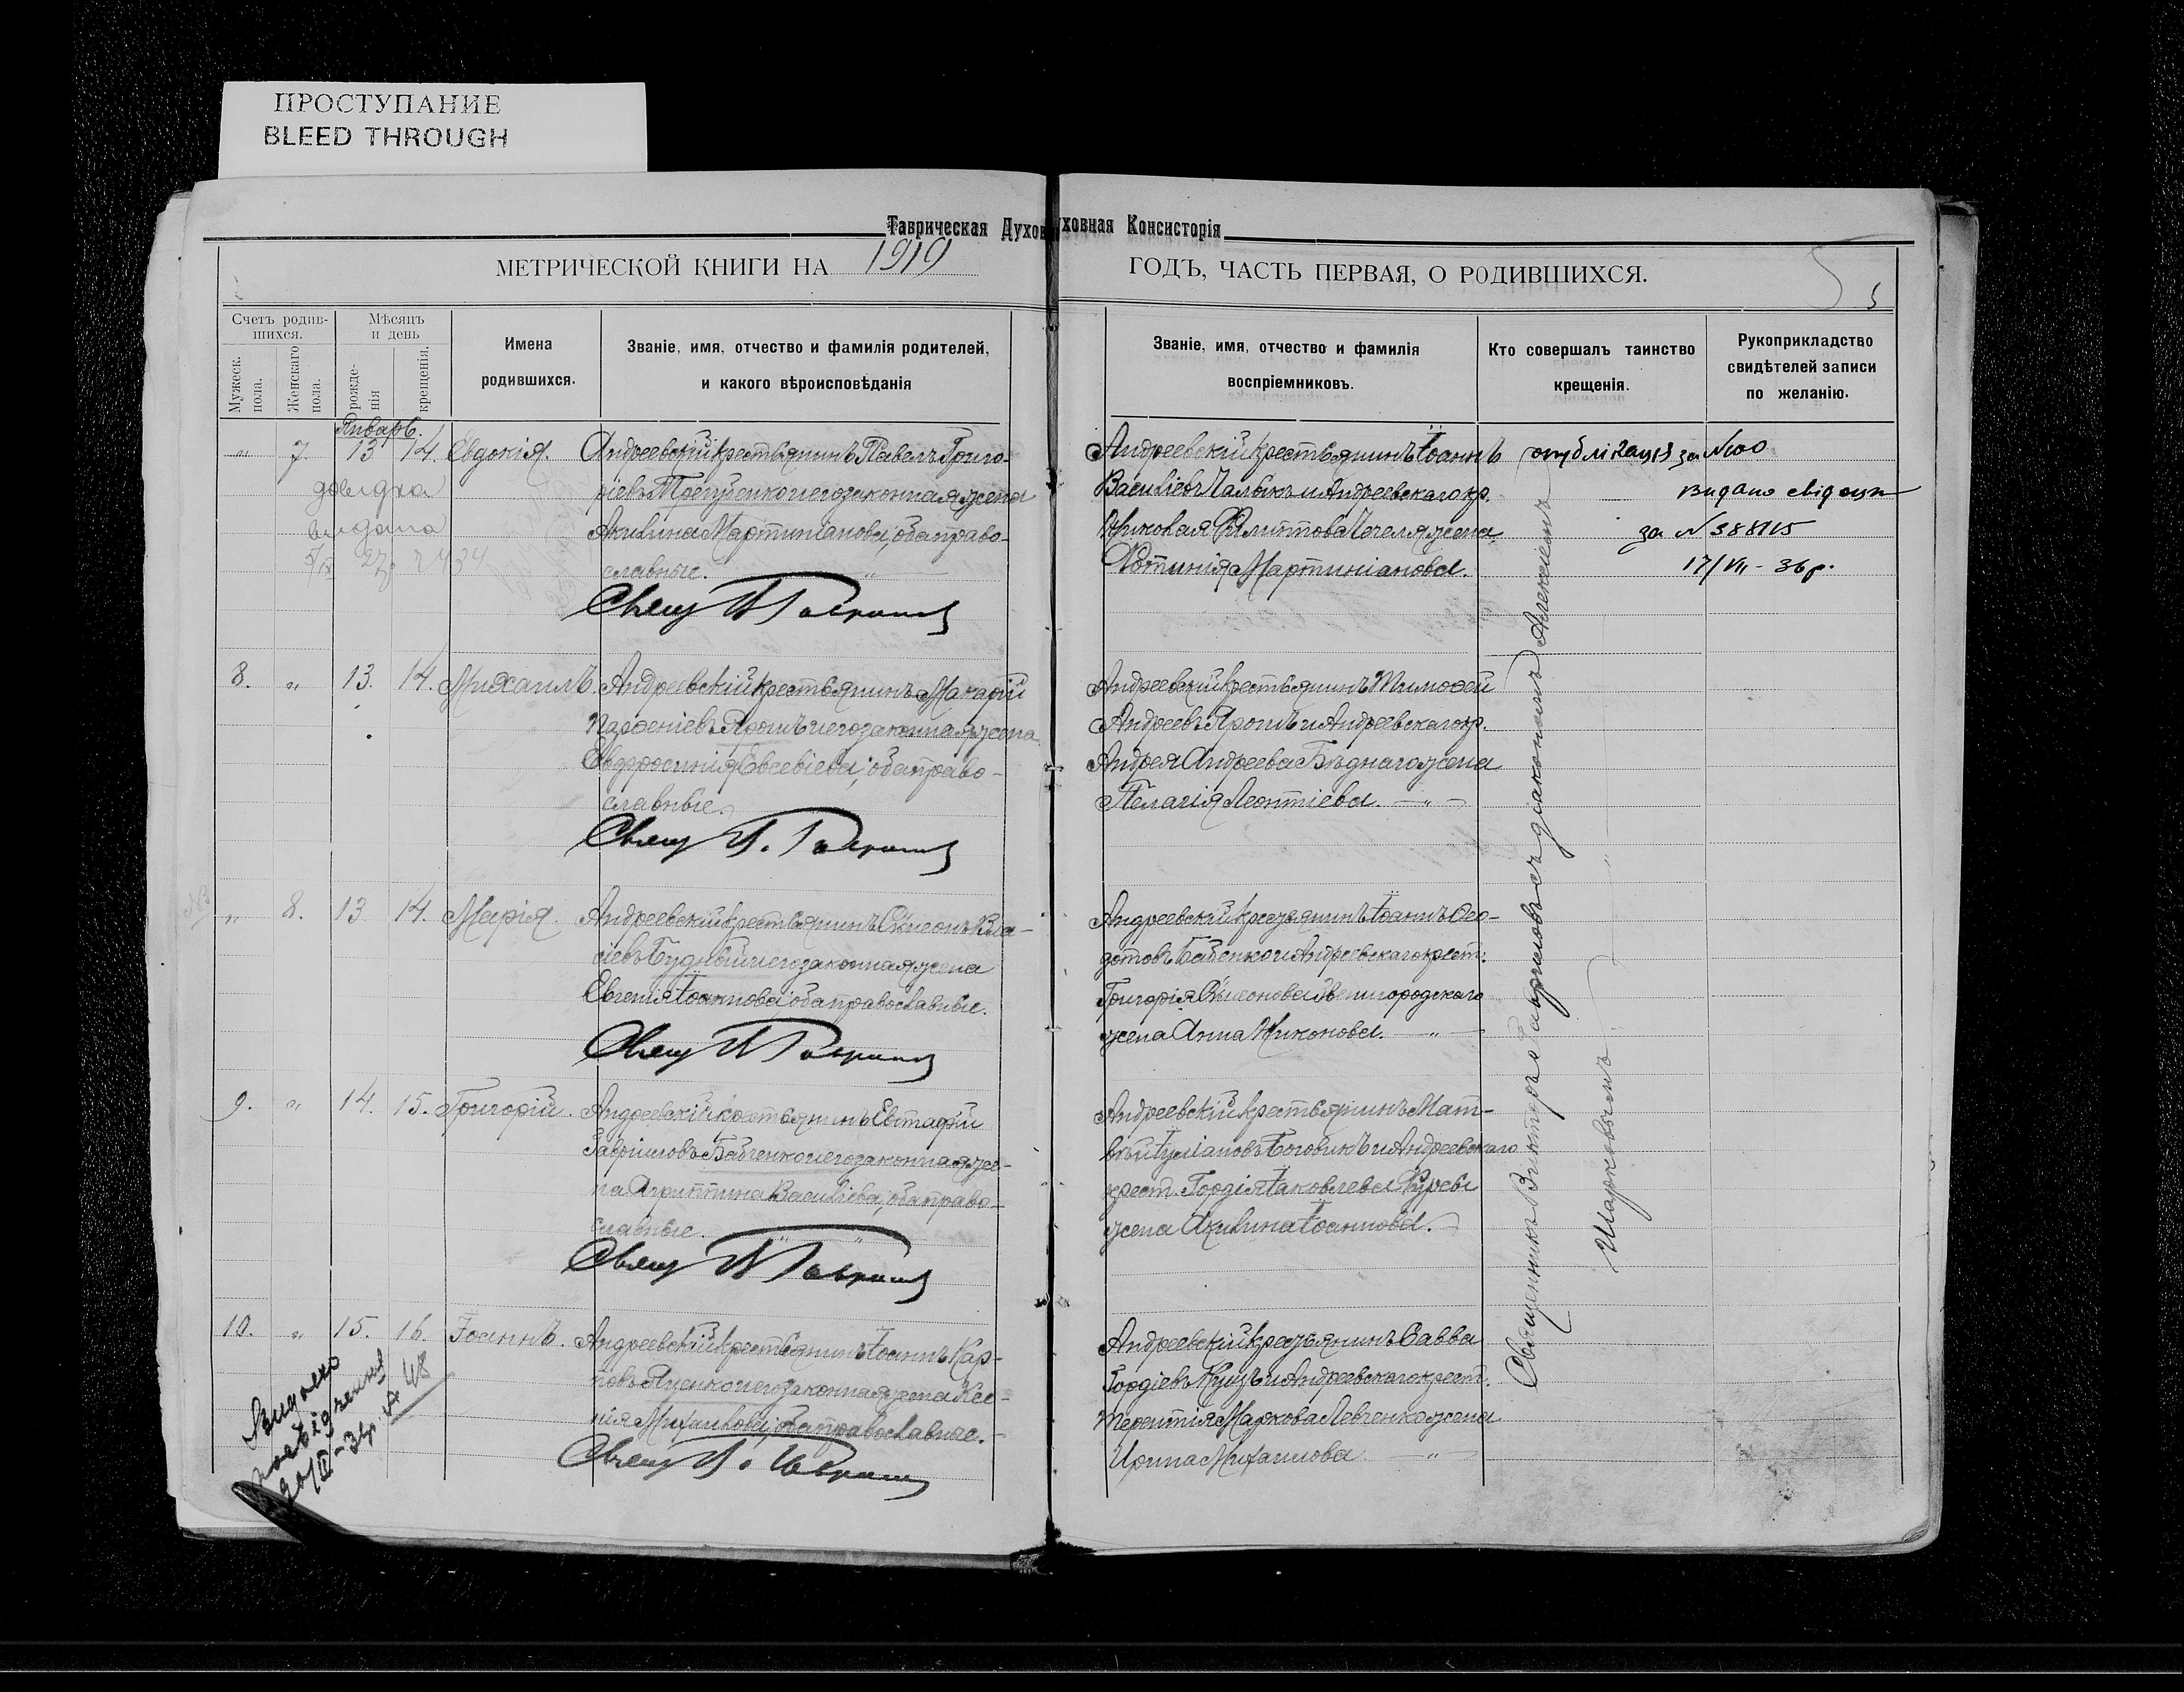 ПРОСТУПАНИЕ
BLEED THROUGH
Таврическая Духов
уховная Консисторія
МЕТРИЧЕСКОЙ КНИГИ НА 1919
ГОДЪ, ЧАСТЬ ПЕРВАЯ, О РОДИВШИХСЯ.
5
5
Счетъ родив-
шихся.
Мѣсяцъ
и день
Мужеск.
пола.
Женскаго
пола.
рожде-
нія
крещенія.
Имена
родившихся.
Званіе, имя, отчество и фамилія родителей,
и какого вѣроисповѣданія
Званіе, имя, отчество и фамилія
воспріемниковъ.
Кто совершалъ таинство
крещенія.
Рукоприкладство
свидѣтелей записи
по желанію.
Январь.
„ 7 13 14. Евдокія. Андреевскій крестьянинъ Павелъ Григо-
ріевъ и его законная жена
Акилина Мартиніанова, оба право-
славные.
довідка
видана
Свящ В Гаврилов
Андреевскій крестьянинъ Іоаннъ
Василіевъ и Андреевскаго кр.
жена
Фотинія Мартиніанова.
публікація за №100
видано свідоцт
за № 388115
17/VII - 36 р.
8. „ 13. 14. Михаилъ. Андреевскій крестьянинъ Макарій
Парѳеніевъ Ярошъ и его законная жена
Евфросинія Евсевіева, оба право-
славные.
Свящ В. Гаврилов
Андреевскій крестьянинъ Тимоѳей
Андреевъ Ярошъ и Андреевскаго кр.
Андрея Андреева Бѣднаго жена
Пелагія Леонтіева. „
„ 8. 13. 14. Марія. Андреевскій крестьянинъ Симеонъ Вла-
сіевъ и его законная жена
Евгенія Іоаннова, оба православные.
Свящ В Гаврилов
Андреевскій крестьянинъ Іоаннъ Ѳео-
дотовъ Бабенко и Андреевскаго крест.
Григорія Симеонова Звенигородскаго
жена Анна Никонова. „
9. „ 14. 15. Григорій. Андреевскій крестьянинъ Евстафій
Гавриловъ Бабченко и его законная же-
на Агриппина Василіева, оба право-
славные.
Свящ В Гаврилов
Андреевскій крестьянинъ Мат-
вѣй Іуліановъ Боговикъ и Андреевскаго
крест. Гордія Іаковлева
жена Акилина Іоаннова.
10. „ 15. 16. Іоаннъ. Андреевскій крестьянинъ Іоаннъ Кар-
повъ Яценко и его законная жена Ксе-
нія Михаилова, оба православные.
Свящ В. Гаврилов
Андреевскій крестьянинъ Савва
Гордіевъ Куцъ и Андреевскаго крест.
Терентія Маркова Левченко жена
Ирина Михаилова „
Видано
посвідчення
№ 48
Священникъ Викторъ Гавриловъ съ діакономъ Алексіемъ
Шарковымъ